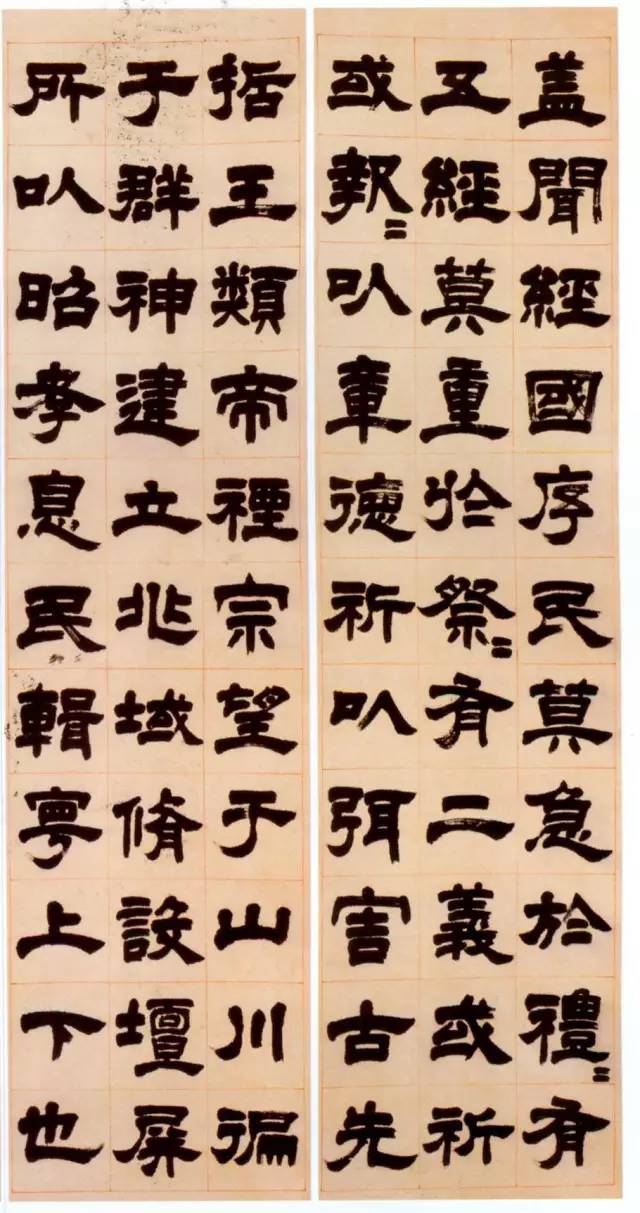 盖聞經國序民莫急於禮〻有
五經莫重於祭〻有二義或祈
或報〻以章德祈以弭害古先
哲王類帝禋宗望于山川徧
于群神建立兆域脩設壇屏
所以昭孝息民輯寧上下也